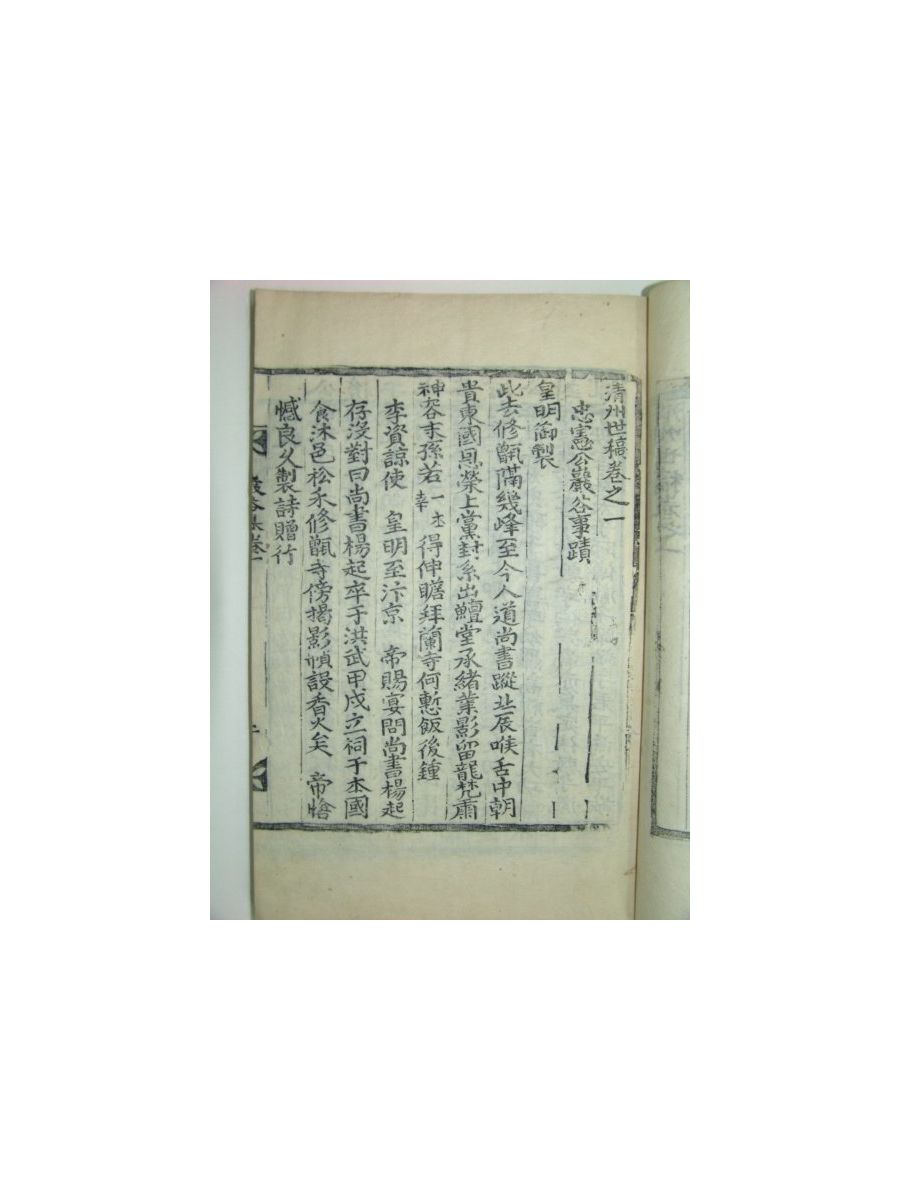 清州世稿卷之一
忠憲公巖谷事蹟
皇明御製
此去修甑隔幾峰至今人道尚書蹤北辰喉舌中朝
貴東國恩榮上黨封系出鱣堂承緒業影留龍梵肅
神容末孫若一本幸得伸瞻拜蘭寺何慙飯後鍾
李資諒使 皇明至汴京 帝賜宴問尚書楊起
存沒對曰尚書楊起卒于洪武甲戌立祠于本國
食沐邑松禾修甑寺傍揭影幀設香火矣 帝嗟
憾良久製詩贈行